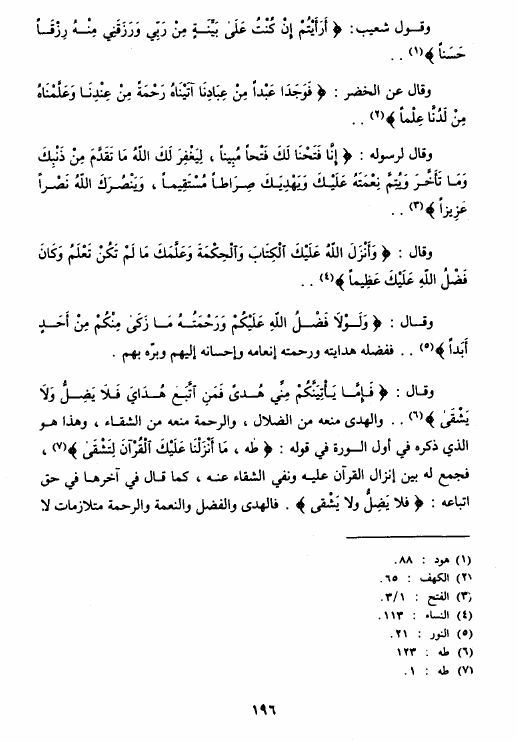 وقول شعيب: ﴿ أَرَأَيْتُمْ إِنْ كُنْتُ عَلَىٰ بَيِّنَةٍ مِنْ رَبِّي وَرَزَقَنِي مِنْهُ رِزْقاً
حَسَناً ﴾(١) ..
وقال عن الخضر : ﴿ فَوَجَدَا عَبْداً مِنْ عِبَادِنَا آتَيْنَاهُ رَحْمَةً مِنْ عِنْدِنَا وَعَلَّمْنَاهُ
مِنْ لَدُنَّا عِلْماً ﴾(٢) ..
وقال لرسوله : ﴿ إِنَّا فَتَحْنَا لَكَ فَتْحاً مُبِيناً ، لِيَغْفِرَ لَكَ اللهُ مَا تَقَدَّمَ مِنْ ذَنْبِكَ
وَمَا تَأَخَّرَ وَيُتِمَّ نِعْمَتَهُ عَلَيْكَ وَيَهْدِيَكَ صِرَاطاً مُسْتَقِيماً ، وَيَنْصُرَكَ اللهُ نَصْراً
عَزِيزاً ﴾(٣) ..
وقال : ﴿ وَأَنْزَلَ اللهُ عَلَيْكَ الْكِتَابَ وَالْحِكْمَةَ وَعَلَّمَكَ مَا لَمْ تَكُنْ تَعْلَمُ وَكَانَ
فَضْلُ اللهِ عَلَيْكَ عَظِيماً ﴾(٤) ..
وقال : ﴿ وَلَوْلَا فَضْلُ اللهِ عَلَيْكُمْ وَرَحْمَتُهُ مَا زَكَىٰ مِنْكُمْ مِنْ أَحَدٍ
أَبَداً ﴾(٥) .. ففضله هدايته ورحمته إنعامه وإحسانه إليهم وبرّه بهم .
وقال : ﴿ فَإِمَّا يَأْتِيَنَّكُمْ مِنِّي هُدىً فَمَنِ اتَّبَعَ هُدَايَ فَلَا يَضِلُّ وَلَا
يَشْقَىٰ ﴾(٦) .. والهدى منعه من الضلال ، والرحمة منعه من الشقاء ، وهذا هو
الذي ذكره في أول السورة في قوله : ﴿ طه ، مَا أَنْزَلْنَا عَلَيْكَ الْقُرْآنَ لِتَشْقَىٰ ﴾(٧) ،
فجمع له بين إنزال القرآن عليه ونفي الشقاء عنه ، كما قال في آخرها في حق
اتباعه : ﴿ فلا يَضِلُّ ولا يَشْقى ﴾ . فالهدى والفضل والنعمة والرحمة متلازمات لا
(١) هود : ٨٨.
(٢) الكهف : ٦٥.
(٣) الفتح : ٣/١.
(٤) النساء : ١١٣.
(٥) النور : ٢١.
(٦) طه : ١٢٣
(٧) طه : ١.
١٩٦